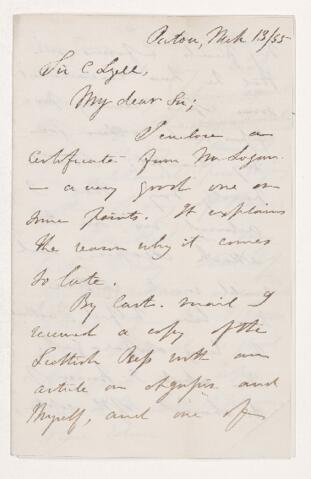 Pictou, Mch 13/55
Sir C Lyell,
My dear Sir;
I enclose a
Certificate from Mr Logan.
— a very good one on
some points. It explains
the reason why it comes
so late.
By last mail I
received a copy of the
Scottish Press with an
article on Agassiz and
Myself, and one of